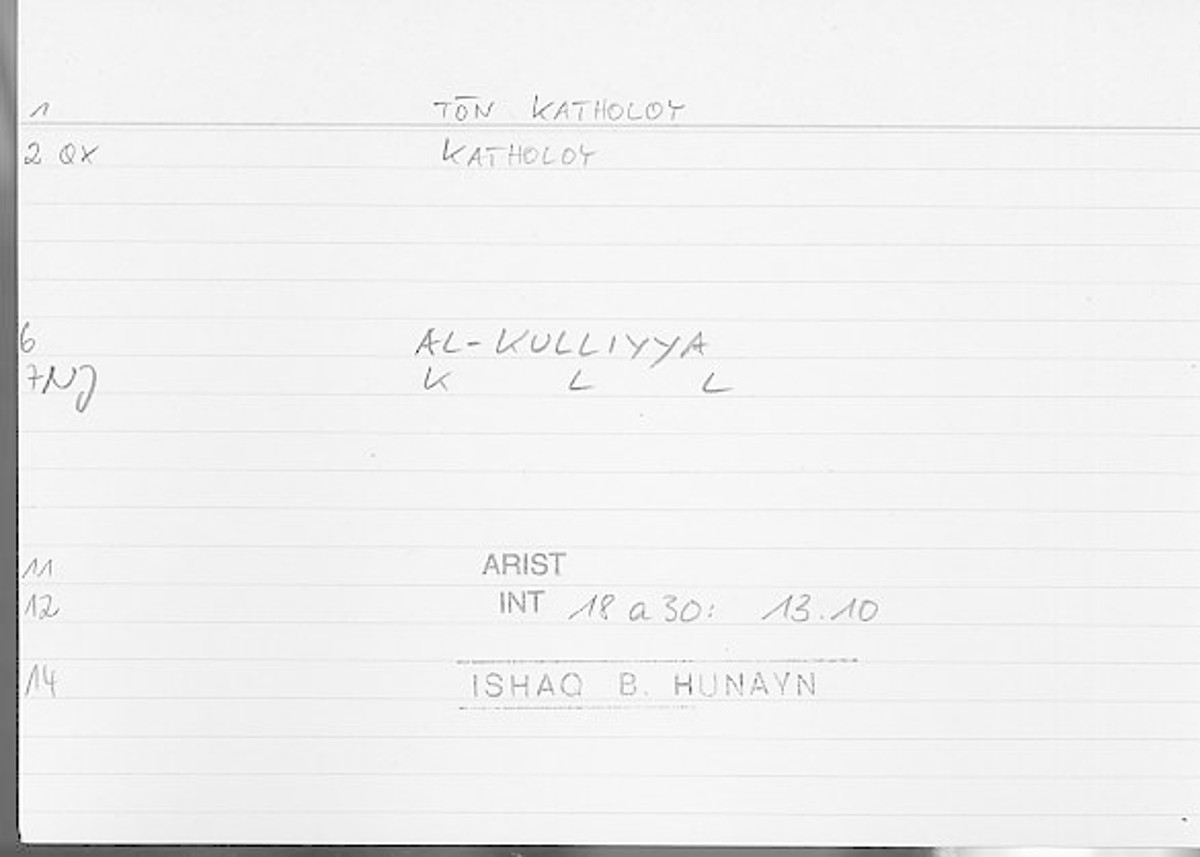 1 TŌN KATHOLOY
2 QX KATHOLOY
6 AL-KULLIYYA
7NJ K L L
11 ARIST
12 INT 18 a 30: 13.10
14 ISHAQ B. HUNAYN